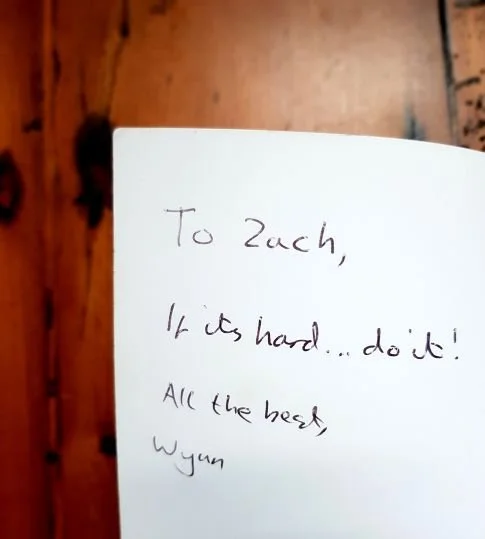 To Zach,
If its hard... do it!
All the best,
Wynn